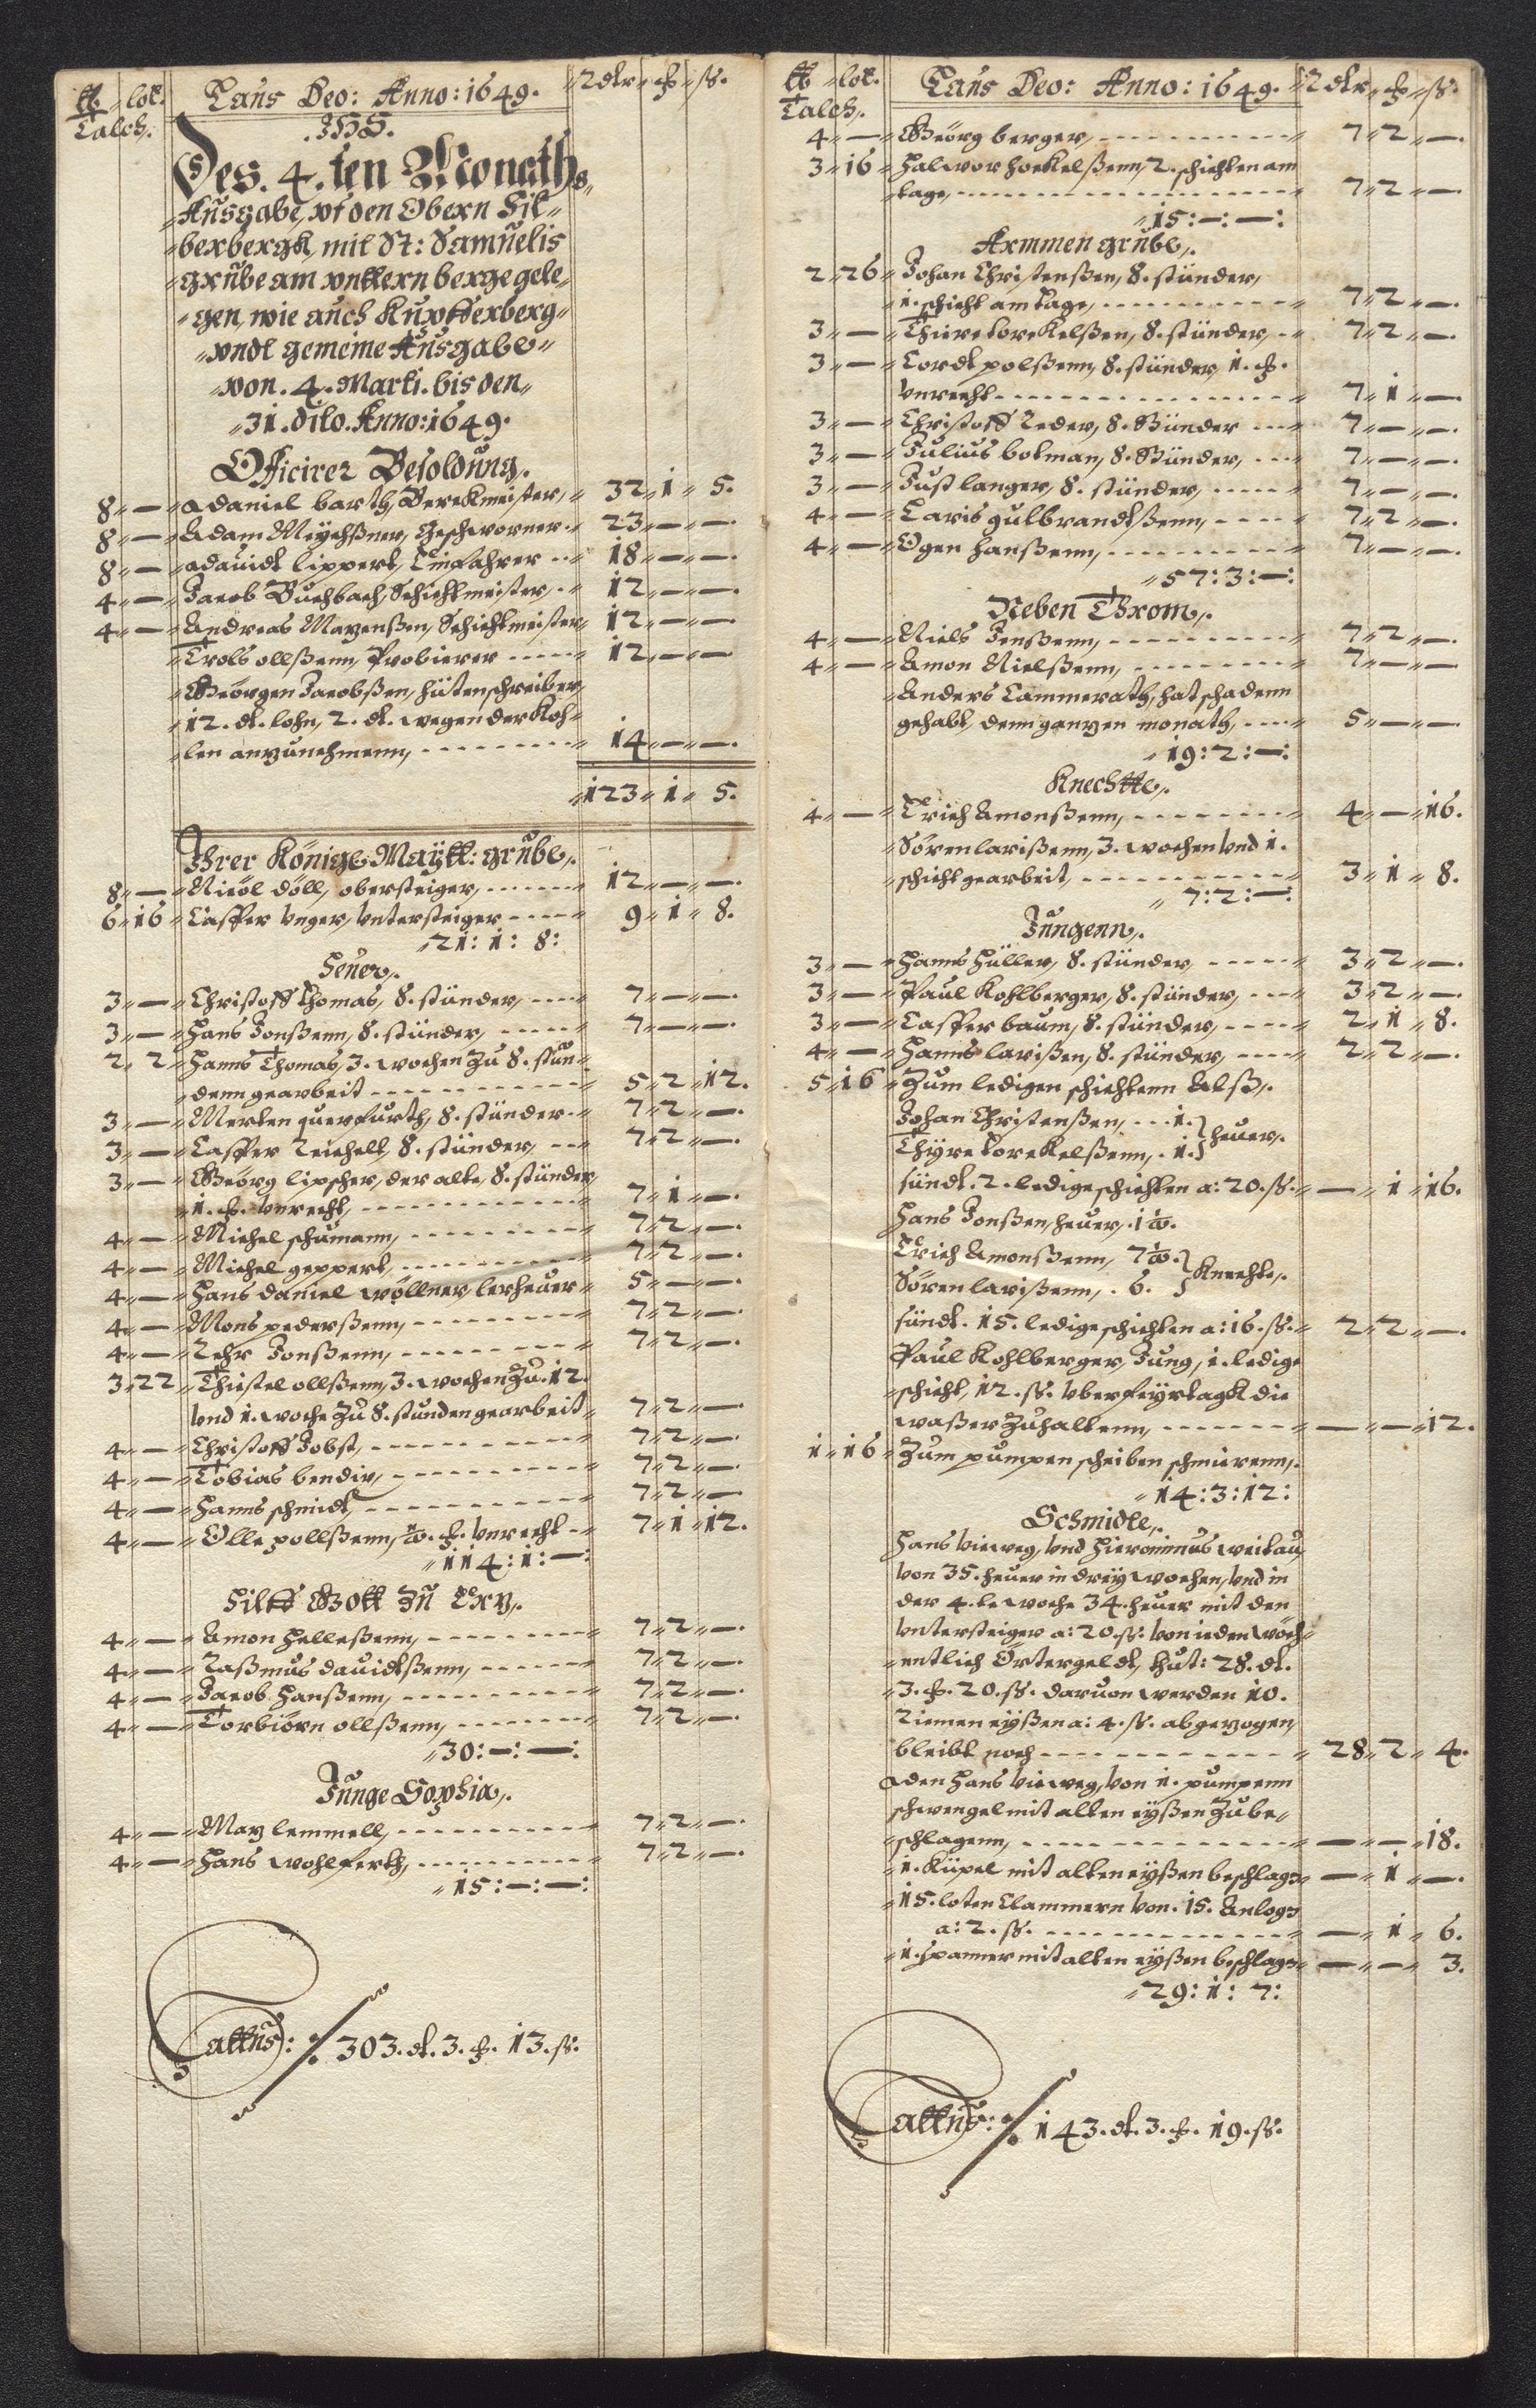 lb lot. Laus Deo: Anno: 1649. Rdlr ß.
Talch.
IHS.
Des. 4. ten Monaths
Ausgabe, vf den Obern Sil-
berbergk, mit St: Samuelis
grube am vnttern berge gele-
gen, wie auch Kupfferberg
vndt gemeine Ausgabe
von. 4. Marti. bis den
31. dito. Anno: 1649.
Officirer Besoldung.
8 — Daniel barth, Berckmeister, 32 1 5.
8 — Adam Meÿchßner, Geschworner 23 — —.
8 — dauidt lippert, Einfahrer 18 — —.
4 — Jacob Buchbach, Schichtmeister, 12 — —.
4 — Andreas Maxenßen, Schichtmeister 12 — —.
Trols ollßenn, Probierer 12 — —
Geörgen Jacobßen, hütenschreiber,
12. dt. lohn, 2. dt. wegen der Koh-
len anzunehmenn, 14 — —.
123 1 5.
Ihrer Königl: Maÿtt: grube,.
8 — Nicöl döll, obersteiger, 12 — —.
6 16 Casper Vnger, Vntersteiger 9 1 8.
21: 1: 8:
Heuer,.
3 — Christoff Thomas, 8. stünder, 7 — —.
3 — Hans Jonßenn, 8. stünder, 7 — —.
2 2 Hanns Thomas, 3. wochen Zu 8. stun-
denn gearbeit 5 2 12.
3 — Merten querfurth, 8. stünder 7 2 —.
3 — Casper Reichelt, 8. stünder, 7 2 —.
3 — Geörg lipscher, der alte, 8. stünder,
1. Vnrecht, 7 1 —.
4 — Michel schumann, 7 2 —.
4 — Michel geppert, 7 2 —.
4 — Hans daniel wöllner, lerheuer 5 — —.
4 — Mons pederßenn, 7 2 —.
4 — Rehr Jonßenn, 7 2 —.
3 22 Thiostel ollßenn, 3. wochen Zu. 12.
Vnd 1. woche Zu 8. stunden gearbeit 7 2 —.
4 — Christoff Jobst, 7 2 —.
4 — Tobias bendix, 7 2 —.
4 — Hanns schmidt, 7 2 —.
4 — Olle pollßenn, Vnrecht 7 1 12.
114: 1: —:
Hilff Gott Zu Ertz,.
4 — Amon Helleßenn, 7 2 —.
4 — Raßmus dauidtßenn, 7 2 —.
4 — Jacob Hanßenn, 7 2 —.
4 — Torbiörn ollßenn, 7 2 —.
30: —: —:
Junge Sophia,.
4 — Max lemmell, 7 2 —.
4 — Hans wohlferth, 7 2 —.
15: —: —:
Lattus: 303. dt. 3. 13. ß.
lb lot. Laus Deo: Anno: 1649. Rdlr ß.
Talch.
4 — Geörg berger, 7 2 —.
3 16 Halwor hoekelßenn, 2. schichten am
tage, 7 2 —.
15: —: —:
Armmen grube,.
2 26 Johan Christenßen, 8. stünder,
1. schicht am Tage, 7 2 —.
3 — Thire torekelßen, 8. stünder, 7 2 —.
3 — Cordt polßenn, 8. stünder, 1.
Vnrecht 7 1 —.
3 — Christoff Reder, 8. stünder 7 — —.
3 — Julius botman, 8. stünder, 7 — —.
3 — Just langer, 8. stünder, 7 — —.
4 — Laris gulbrandtßenn, 7 2 —.
4 — Ogen hanßenn, 7 — —.
57: 3: —:
Neben Throm,.
4 — Niels Jenßenn, 7 2 —.
4 — Amon Nielßenn, 7 — —
Anders Cammerath, hat schadenn
gehabt, denn ganzen monath, 5 — —
19: 2: —:
Knechtte,.
4 — Erich Amonßenn, 4 — 16.
Sören larißenn, 3. wochen Vnd 1.
schicht gearbeit, 3 1 8.
7: 2: —:
Jungenn,.
3 — Hanns Hüller, 8. stünder, 3 2 —.
3 — Paul Kohlberger, 8. stünder, 3 2 —.
3 — Casper baum, 8. stünder, 2 1 8.
4 — Hanns larißen, 8. stünder, 2 2 —.
5 16 Zum ledigen schichtenn Alß,.
Johan Christenßen, 1. } heuer,.
Thÿre torekelßenn, 1. }
sündt. 2. ledige schichten a: 20. ß. — 1 16.
Hans Jonßen, heuer, 1
Erich Amonßenn, 7 } Knecht,.
Sören larißenn, 6. }
sündt. 15. ledige schichten a: 16. ß. 2 2 —.
Paul Kohlberger, Jung, 1. ledige
schicht, 12. ß. Vber feÿrtagk die
waßer Zuhaltenn, — — 12.
1 16 Zum pumpen scheiben schmierenn,.
14: 3: 12:
Schmidte,.
Hans Vieweg, Vnd Hieronimus weitau,
Von 35. heuer in dreÿ wochen, Vnd in
der 4. te woche 34. heuer mit den
Vntersteiger a: 20. ß. Von ieden wöch-
entlich Örtergeldt, thut: 28. dt.
3. 20. ß. daruon werden 10.
Riemen eÿßen a: 4. ß. abgezogen,
bleibt noch 28 2 4.
den Hans Vieweg, Von 1. pumpenn
schwengel mit alten eÿßen Zube-
schlagenn, — — 18.
1. Küpel mit alten eÿßen beschlagen — 1 —.
15. loten Clammern Von. 15. Anlogen
a: 2. ß. — 1 6.
1. Spanner mit alten eÿßen beschlagen — — 3.
29: 1: 7:
Lattus: 143. dt. 3. 19. ß.